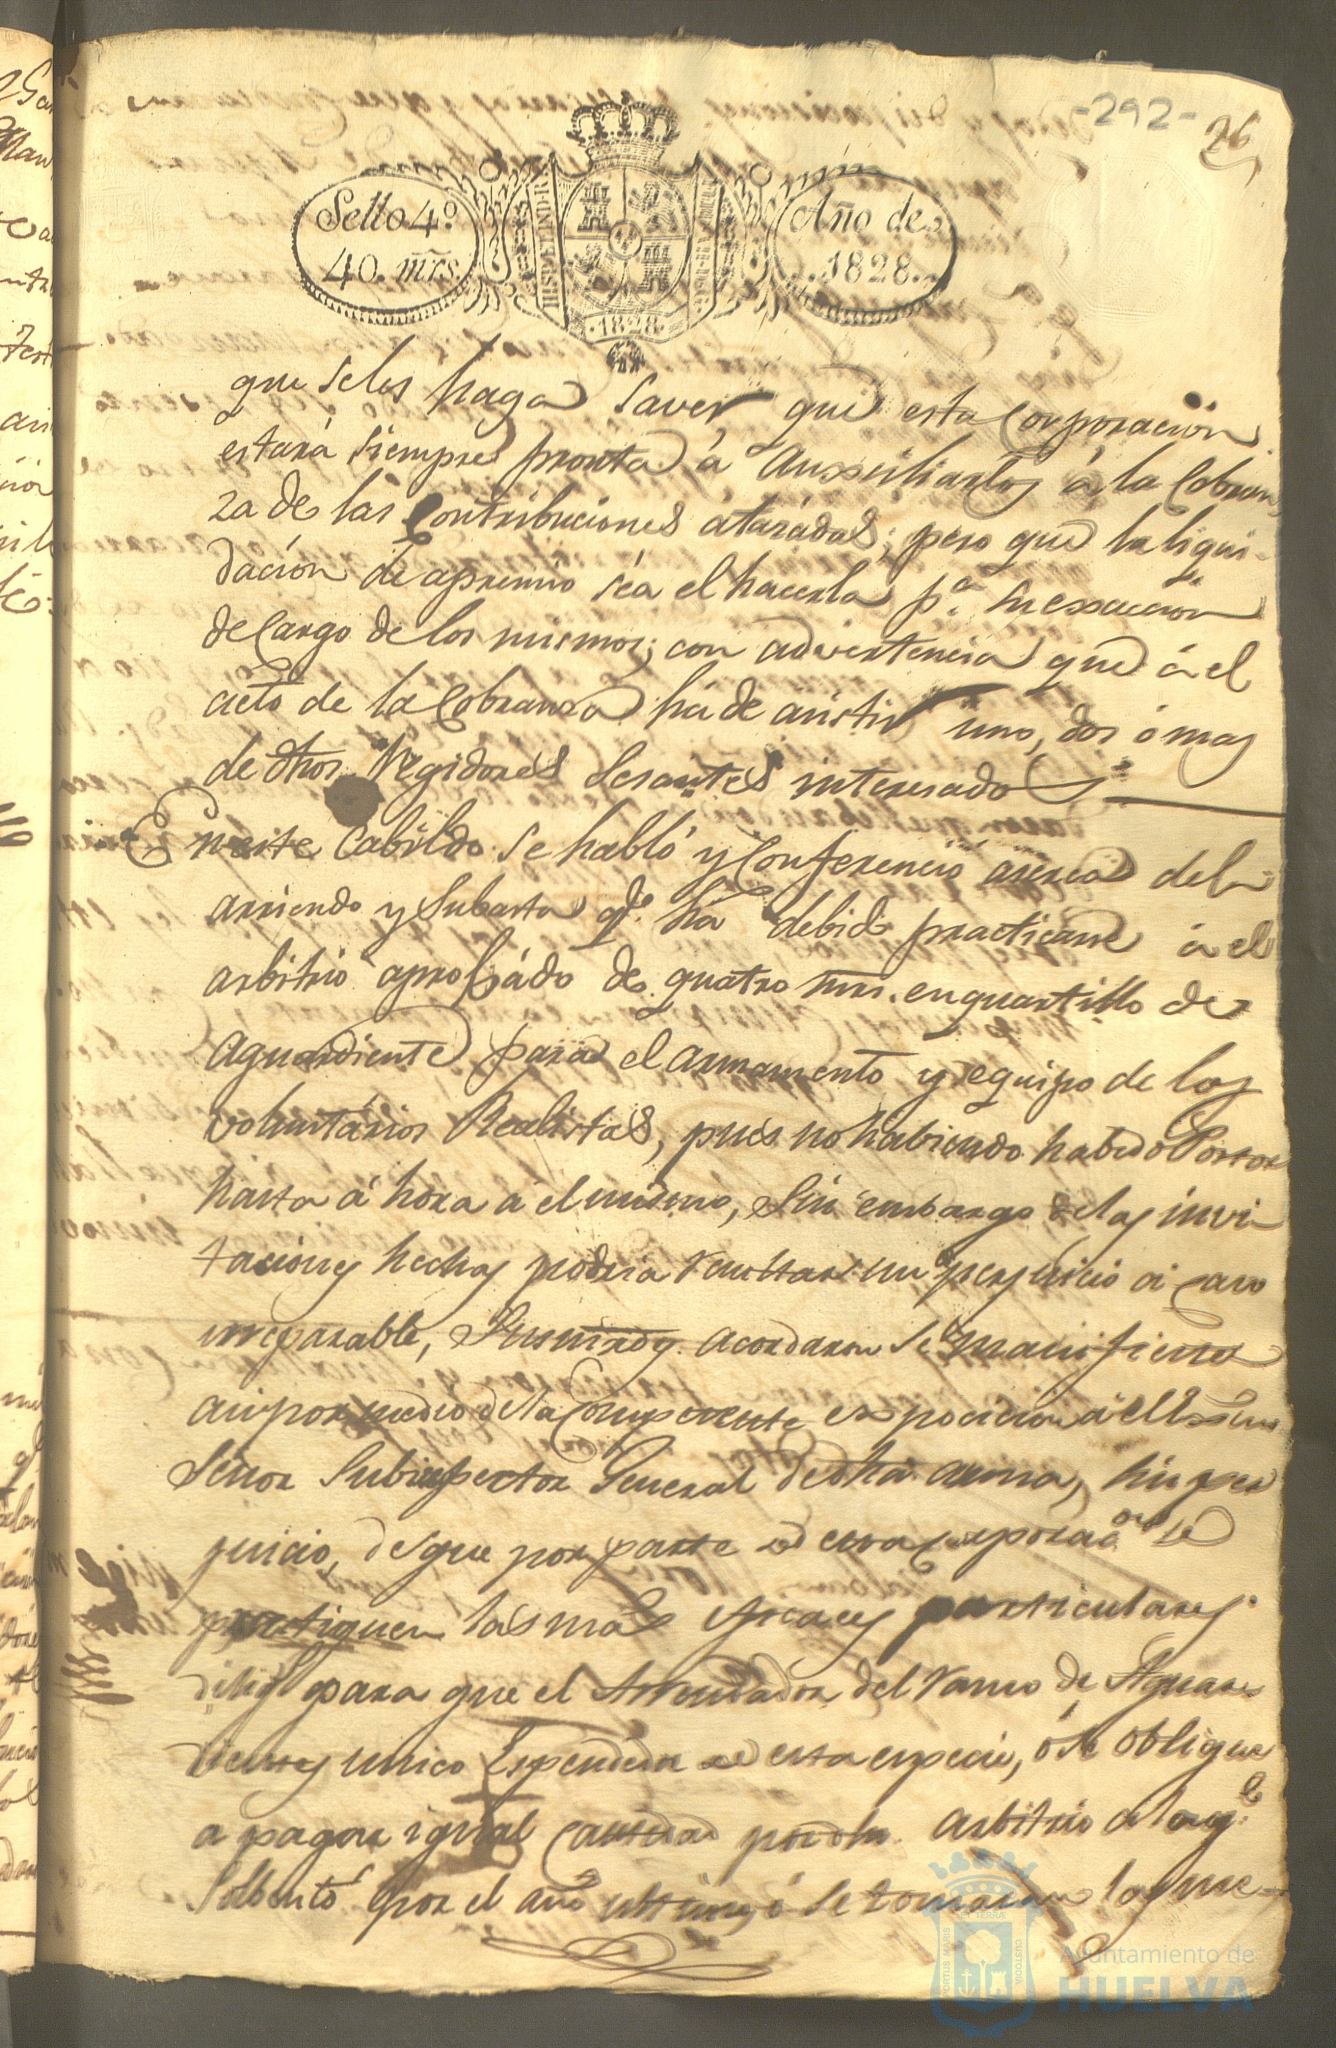 -292-
26
Sello 4.º
40. mrs.
Año de
1828.
1828
que se les haga saver que esta Corporacion
estará siempre pronta á Auxsiliarlos á la Cobran
za de las Contribuciones átrasadas; pero que la liqui-
dación de apremio séa el hacerla p.ª su exsaccion
de Cargo de los mismos; con advertencia que á el
acto de la Cobranza há de asistir uno, dos ó mas
de dhos Regidores Sesantes interesados
En este Cabildo se habló y Conferenció aserca del
arriendo y Subasta q.e há debido practicarse á el
arbitrio aprobádo de quatro mrs. en quartillo de
Aguardiente para el armamento y equipo de los
voluntários Realistas, pues no habiendo habido Postor
hasta á hora á el mismo, sin embargo de las invi
taciones hechas podria resultar un perjuicio á caso
irreparable, Sus mrds. acordaron se manifieste
asi por medio de la Competente exposicion á el Exsmo
Señor Subinspector General de dha arma, sin per
juicio, de que por parte de esta Corporac.on se
practiquen las mas eficaces particulares
dilig.s para que el Arrendador del Ramo de Aguar
dientes unico Espendedor de esta especie, ó se obligue
a pagar igual cantidad por dho arbitrio a la q.e
Solbentó por el año ultimo, ó se tomaran las me-
Ayuntamiento de
HUELVA
PORTUS MARIS
ET TERRÆ
CUSTODIA